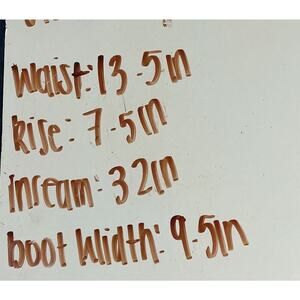 waist: 13.5in
Rise: 7.5in
inseam: 32in
boot width: 9.5in